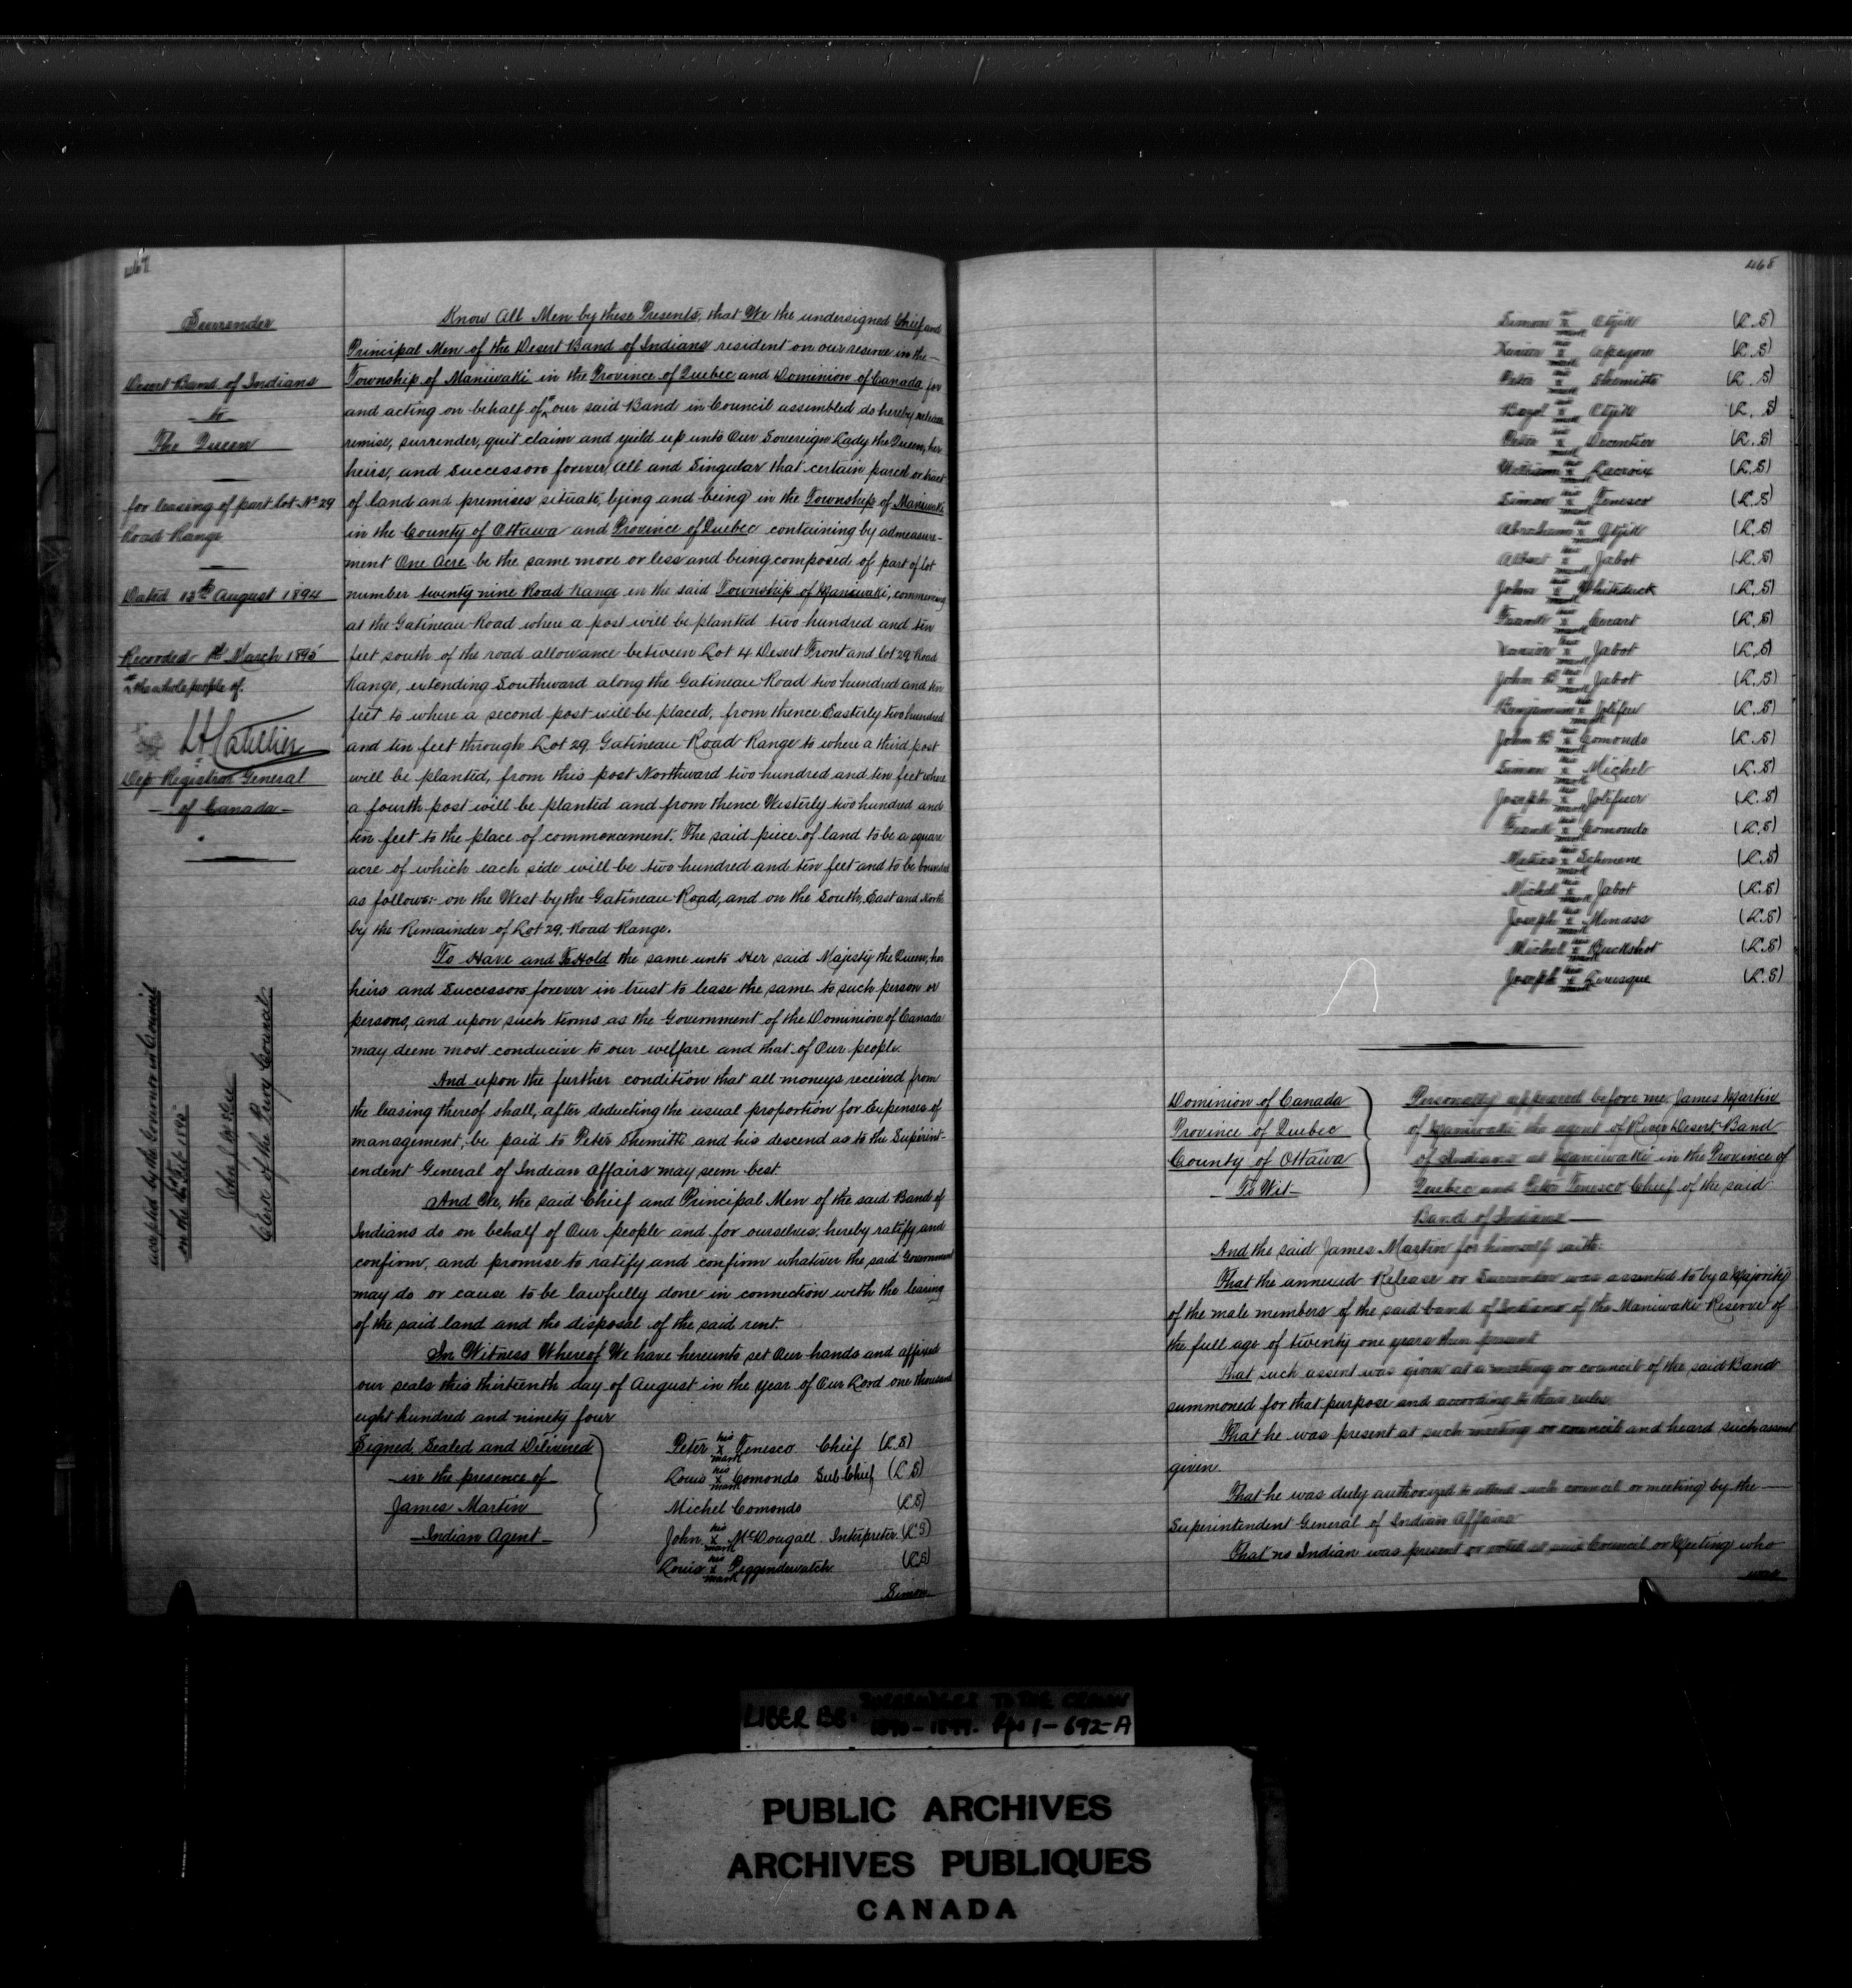 467
Surrender
Desert Band of Indians
to
The Queen
for leasing of part lot No 29
Road Range
Dated 13th August 1894
Recorded March 1895
the whole people of.
Dep Registrar General
of Canada
accepted by the Governor in Council
on the Feb 1895
Clerk of the Privy Council
Know All Men by these Presents, that We the undersigned Chief and
Principal Men of the Desert Band of Indians resident on our reserve in the
Township of Maniwaki in the Province of Quebec and Dominion of Canada for
and acting on behalf of our said Band in Council assembled do hereby release
remise, surrender, quit claim and yield up unto Our Sovereign Lady the Queen, her
heirs, and Successors forever, All and Singular that certain parcel or tract
of land and premises situate, lying and being in the Township of Maniwaki
in the County of Ottawa and Province of Quebec containing by admeasure-
ment One Acre be the same more or less and being composed of part of lot
number twenty nine Road Range in the said Township of Maniwaki, commencing
at the Gatineau Road where a post will be planted two hundred and ten
feet south of the road allowance between Lot 4 Desert Front and lot 29 Road
Range, extending Southward along the Gatineau Road two hundred and ten
feet to where a second post will be placed, from thence Easterly two hundred
and ten feet through Lot 29 Gatineau Road Range to where a third post
will be planted, from this post Northward two hundred and ten feet where
a fourth post will be planted and from thence Westerly two hundred and
ten feet to the place of commencement. The said piece of land to be a square
acre of which each side will be two hundred and ten feet and to be bounded
as follows:- on the West by the Gatineau Road, and on the South, East and North
by the Remainder of Lot 29. Road Range.
To Have and To Hold the same unto Her said Majesty the Queen, her
heirs and Successors forever in trust to lease the same to such person or
persons, and upon such terms as the Government of the Dominion of Canada
may deem most conducive to our welfare and that of Our people.
And upon the further condition that all moneys received from
the leasing thereof shall, after deducting the usual proportion for Expenses of
management, be paid to Peter Shemitte and his descend as to the Superint-
endent General of Indian Affairs may seem best
And We, the said Chief and Principal Men of the said Band of
Indians do on behalf of Our people and for ourselves, hereby ratify and
confirm, and promise to ratify and confirm whatever the said Government
may do or cause to be lawfully done in connection with the leasing
of the said land and the disposal of the said rent.
In Witness Whereof We have hereunto set Our hands and affixed
our seals this thirteenth day of August in the year of Our Lord one thousand
eight hundred and ninety four
Signed, Sealed and Delivered
in the presence of
James Martin
Indian Agent
Peter his x mark Tenesco Chief (L.S)
Louis his x mark Comondo Sub Chief (L.S)
Michel Comondo (L.S)
John his x mark McDougall Interpreter (L.S)
Louis his x mark Pezzendewatch (L.S)
Simon
468
Simon his x mark Otjik (L.S)
his x mark (L.S)
Peter his x mark Shemitte (L.S)
Bazil his x mark Otjik (L.S)
Peter his x mark Decontie (L.S)
William his x mark Lacroix (L.S)
Simon his x mark Tenesco (L.S)
Abraham his x mark Otjik (L.S)
Albert his x mark Jabot (L.S)
John his x mark Whiteduck (L.S)
Frank his x mark (L.S)
his x mark Jabot (L.S)
John B his x mark Jabot (L.S)
Benjamin his x mark (L.S)
John B his x mark Comondo (L.S)
Simon his x mark Michel (L.S)
Joseph his x mark (L.S)
Frank his x mark Comondo (L.S)
his x mark (L.S)
Michel his x mark Jabot (L.S)
Joseph his x mark Menass (L.S)
Michel his x mark Buckshot (L.S)
Joseph his x mark (L.S)
Dominion of Canada
Province of Quebec
County of Ottawa
To Wit
Personally appeared before me James Martin
of Maniwaki the agent of River Desert Band
of Indians at Maniwaki in the Province of
Quebec and Peter Tenesco Chief of the said
Band of Indians
And the said James Martin for himself saith:
That the annexed Release or Surrender was assented to by a Majority
of the male members of the said band of Indians of the Maniwaki Reserve of
the full age of twenty one years then present
That such assent was given at a meeting or council of the said Band
summoned for that purpose and according to their rules
That he was present at such meeting or council and heard such assent
given.
That he was duly authorized to attend such council or meeting by the
Superintendent General of Indian Affairs
That no Indian was present or voted at said Council or Meeting who
was
LIBER BB: SURRENDERS TO THE CROWN
Pps 1-692-A
PUBLIC ARCHIVES
ARCHIVES PUBLIQUES
CANADA